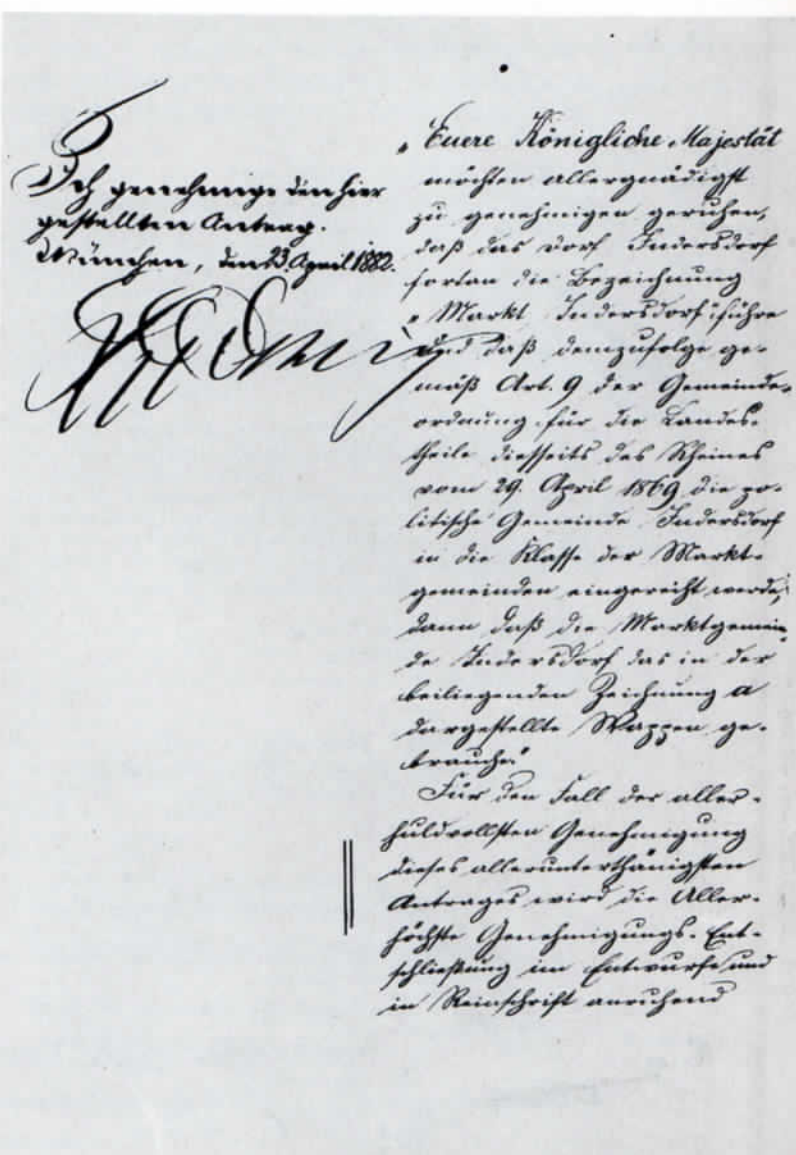 Ich genehmige den hier
gestellten Antrag.
München, den 23. April 1882.
Ludwig
„Euere Königliche Majestät
möchten allergnädigst
zu genehmigen geruhen,
daß das Dorf Indersdorf
fortan die Bezeichnung
„Markt Indersdorf" führe
und daß demzufolge ge-
mäß Art. 9 der Gemeinde-
ordnung für die Landes-
theile diesseits des Rheines
vom 29. April 1869 die po-
litische Gemeinde Indersdorf
in die Klasse der Markt-
gemeinden eingereiht werde,
dann daß die Marktgemein-
de Indersdorf das in der
beiliegenden Zeichnung a
dargestellte Wappen ge-
brauche."
Für den Fall der aller-
huldvollsten Genehmigung
dieses allerunterthänigsten
Antrages wird die Aller-
höchste Genehmigungs-Ent-
schließung im Entwurfe und
in Reinschrift anruhend